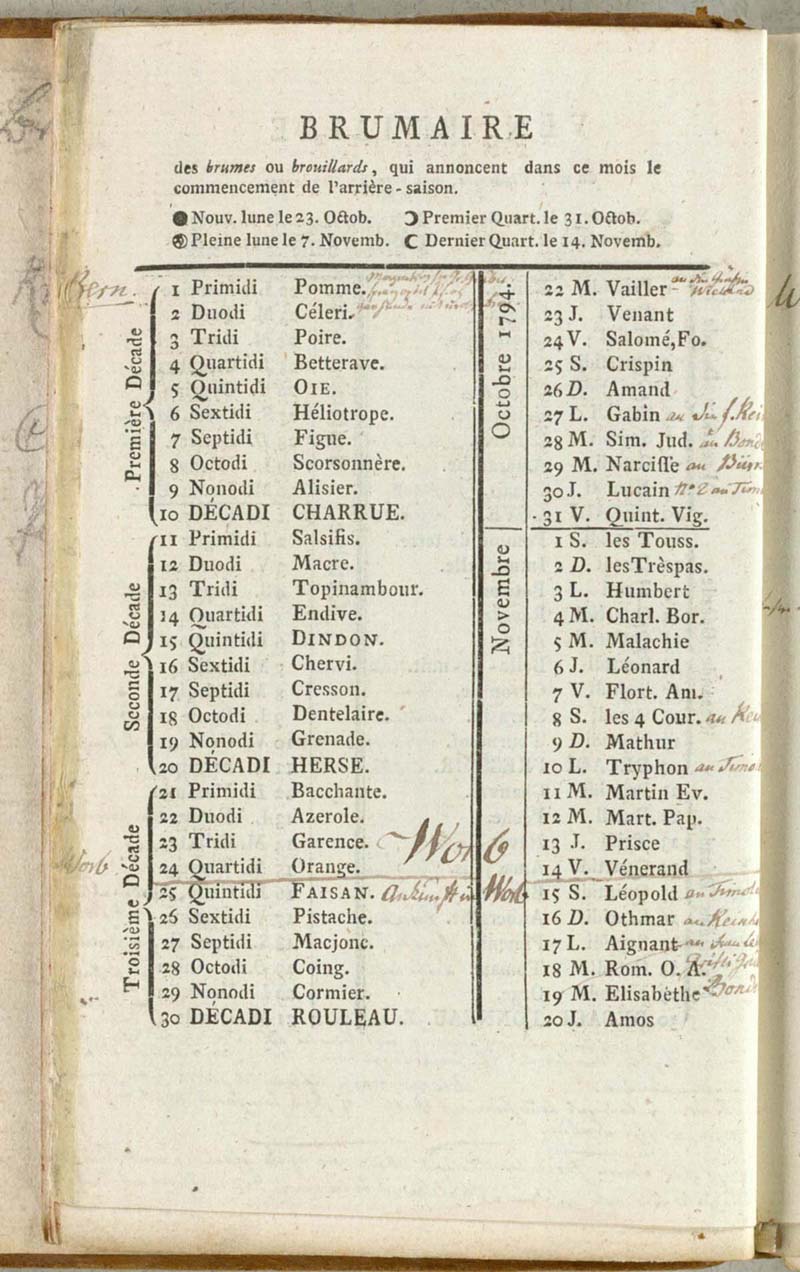 BRUMAIRE
des brumes ou brouillards, qui annoncent dans ce mois le
commencement de l'arrière-saison.
Nouv. lune le 23. Octob. Premier Quart. le 31. Octob.
Pleine lune le 7. Novemb. Dernier Quart. le 14. Novemb.
Bern.
Première Décade
1 Primidi Pomme.
2 Duodi Céleri.
3 Tridi Poire.
4 Quartidi Betterave.
5 Quintidi OIE.
6 Sextidi Héliotrope.
7 Septidi Figue.
8 Octodi Scorsonnère.
9 Nonodi Alisier.
10 DÉCADI CHARRUE.
Seconde Décade
11 Primidi Salsifis.
12 Duodi Macre.
13 Tridi Topinambour.
14 Quartidi Endive.
15 Quintidi DINDON.
16 Sextidi Chervi.
17 Septidi Cresson.
18 Octodi Dentelaire.
19 Nonodi Grenade.
20 DÉCADI HERSE.
Troisième Décade
21 Primidi Bacchante.
22 Duodi Azerole.
23 Tridi Garence. Worb
24 Quartidi Orange.
25 Quintidi FAISAN. Ankunft in Worb
26 Sextidi Pistache.
27 Septidi Macjonc.
28 Octodi Coing.
29 Nonodi Cormier.
30 DÉCADI ROULEAU.
Worb
Octobre 1794.
22 M. Vailler
23 J. Venant
24 V. Salomé, Fo.
25 S. Crispin
26 D. Amand
27 L. Gabin au
28 M. Sim. Jud. au
29 M. Narcisse au
30 J. Lucain
31 V. Quint. Vig.
Novembre
1 S. les Touss.
2 D. les Trèspas.
3 L. Humbert
4 M. Charl. Bor.
5 M. Malachie
6 J. Léonard
7 V. Flort. Am.
8 S. les 4 Cour. au
9 D. Mathur
10 L. Tryphon au
11 M. Martin Ev.
12 M. Mart. Pap.
13 J. Prisce
14 V. Vénerand
15 S. Léopold
16 D. Othmar au
17 L. Aignant
18 M. Rom. O. A.
19 M. Elisabèthe
20 J. Amos